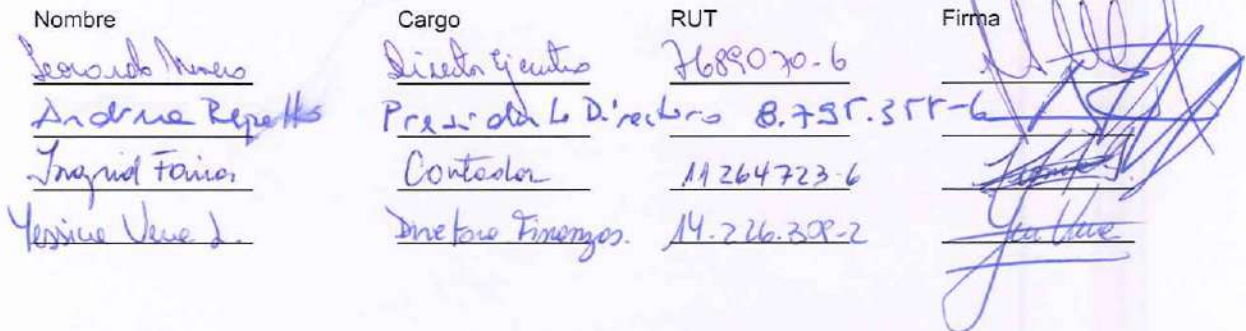 Nombre Cargo RUT Firma
Leonardo Moreno Director Ejecutivo 7689070-6
Andrea Repetto Presidenta Directorio 8.795.355-6
Ingrid Farias Contador 11264723-6
Yessica Vera L. Directora Finanzas. 14.226.309-2